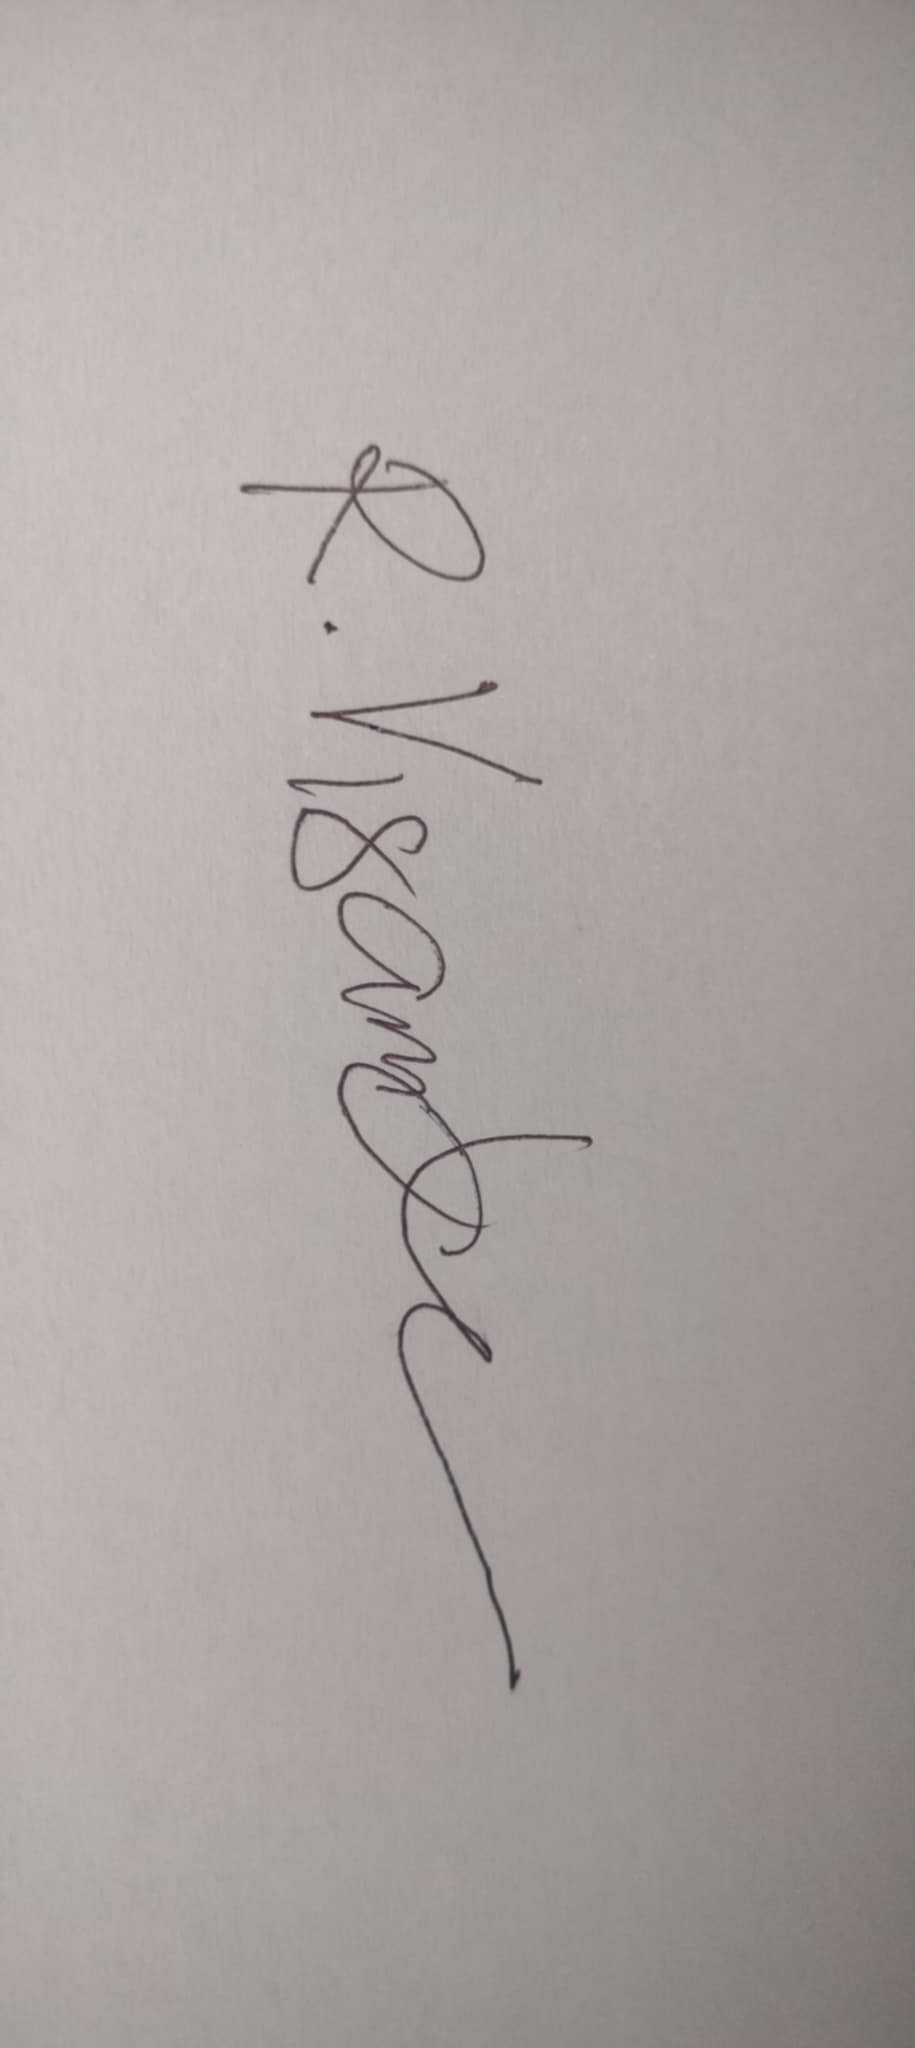 R. Visanth